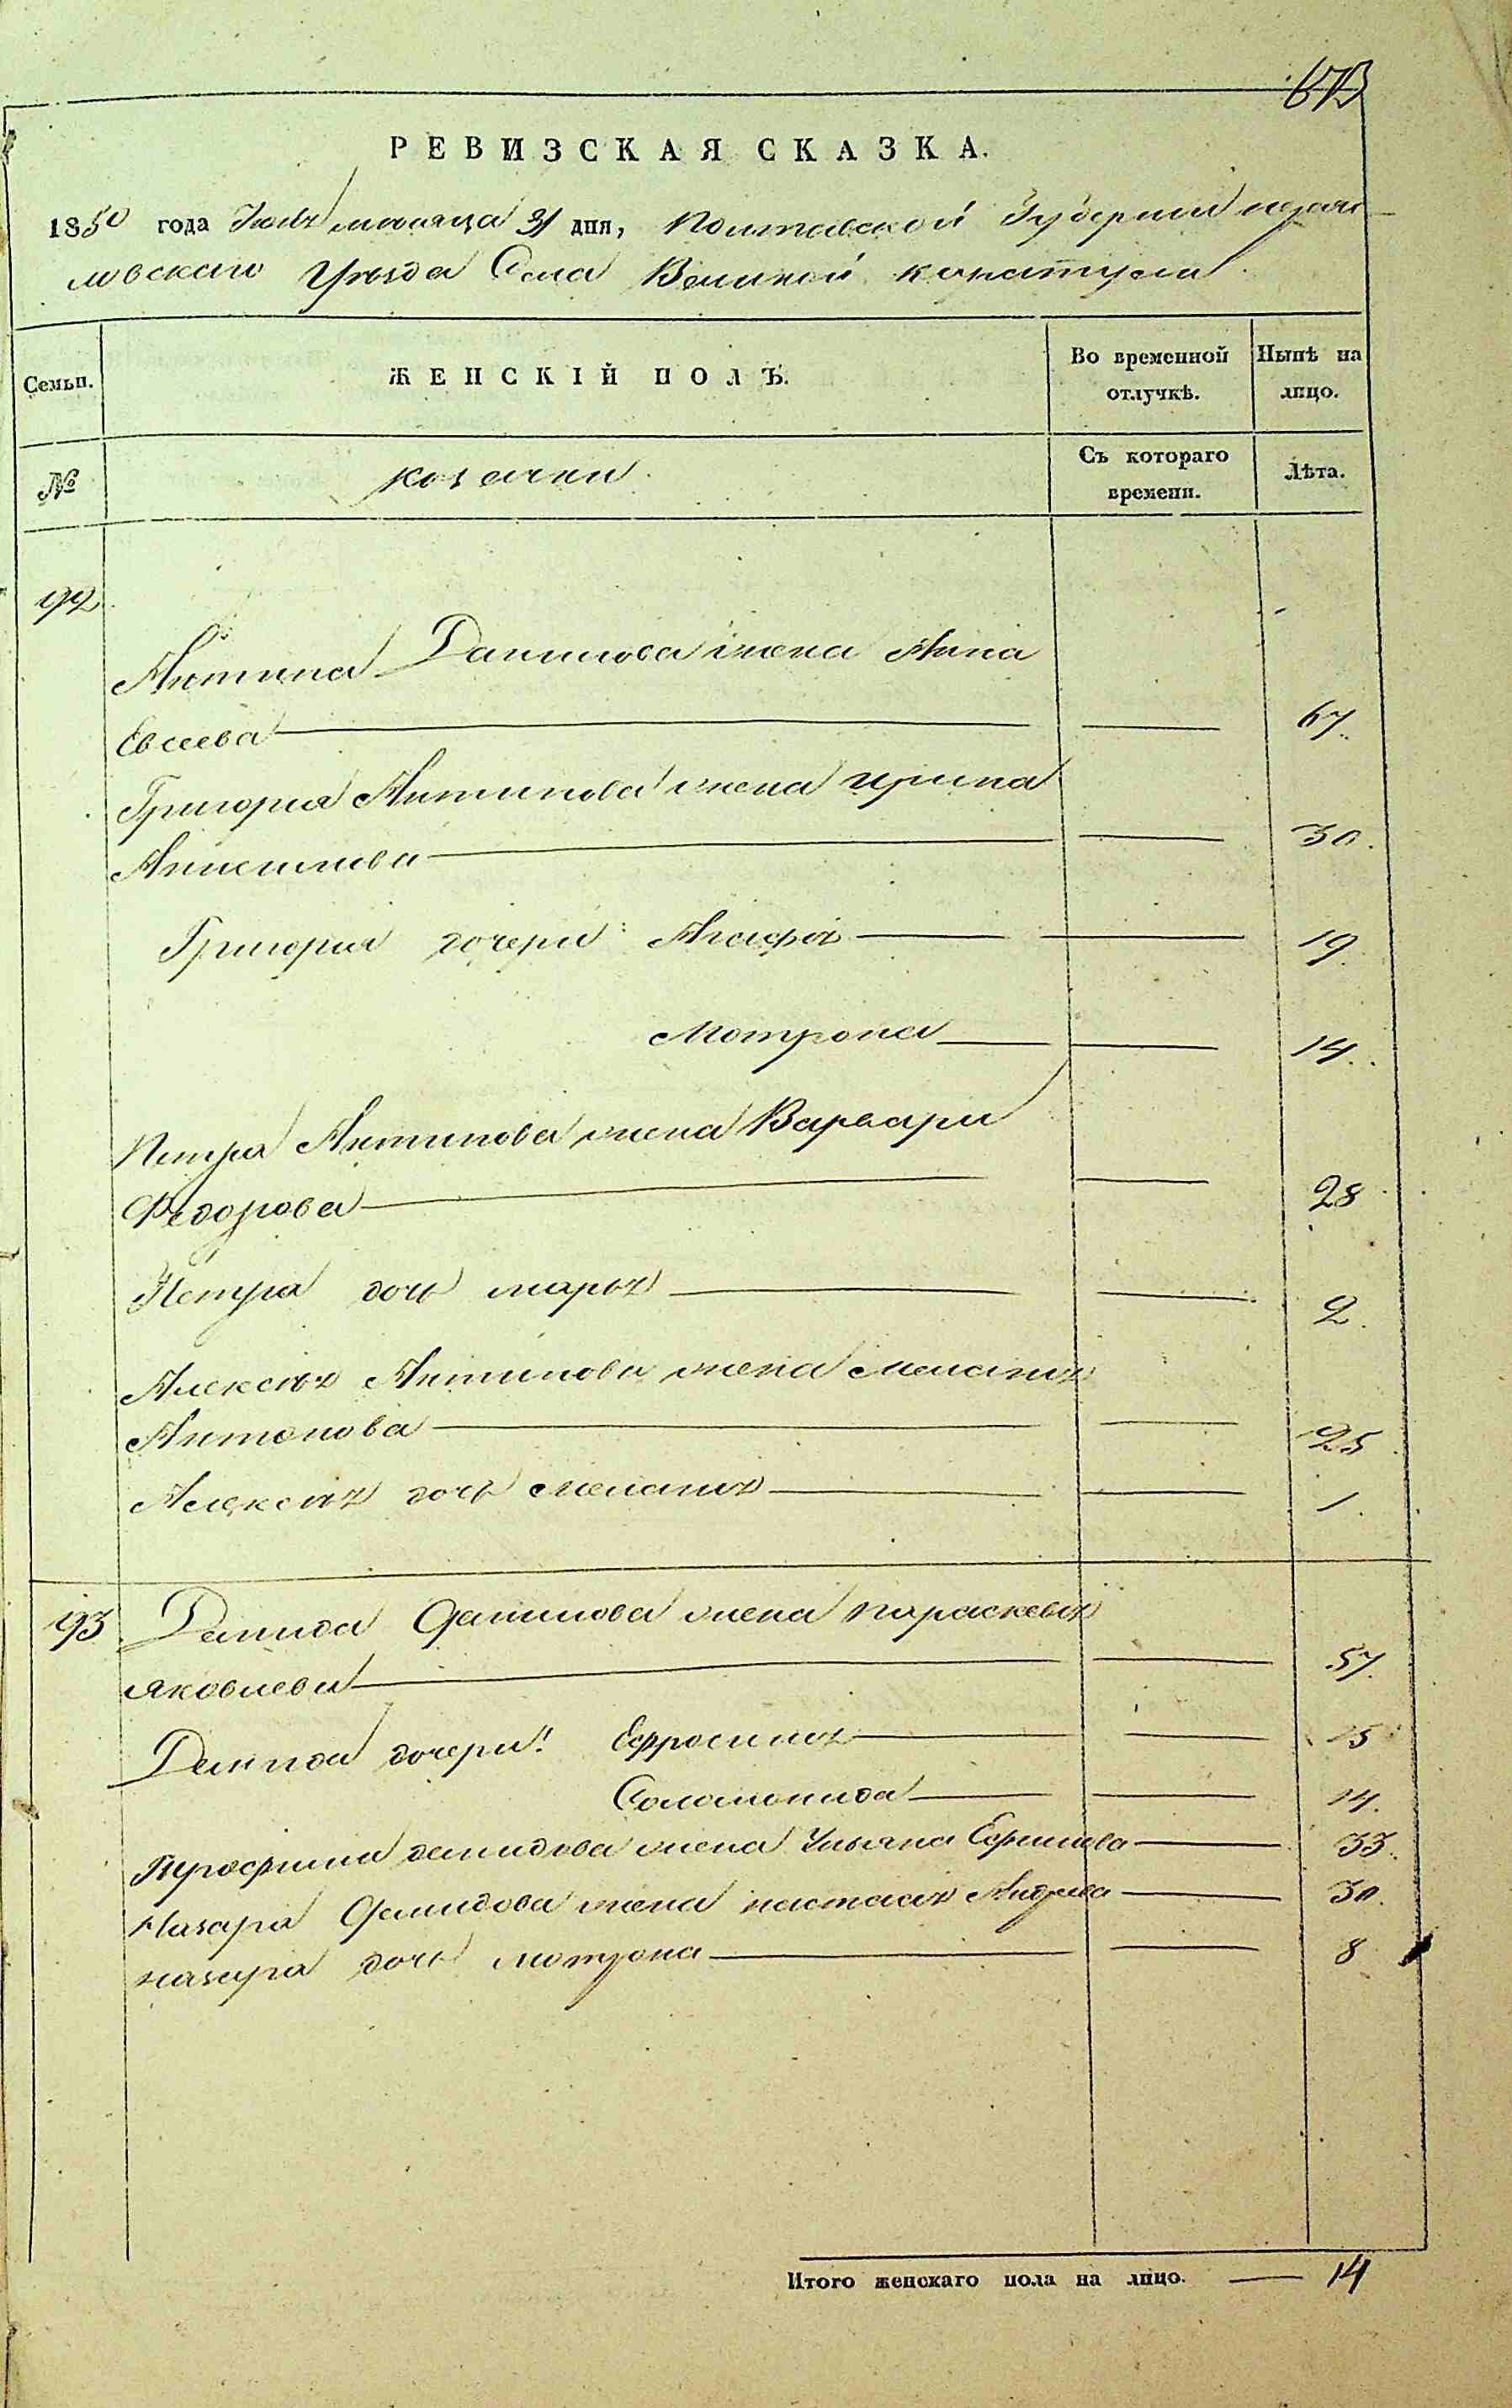 673
РЕВИЗСКАЯ СКАЗКА.
1850 года Июля месяца 31 дня, Полтавской Губернии переяс-
ловского Уезда Села Великой каратули
Семьи. ЖЕНСКІЙ ПОЛЪ. Во временной отлучкѣ. Нынѣ на лицо.
№ козачки Съ котораго времени. Лѣта.
192
Антипа Данилова жена Анна
Евсеева 67.
Григория Антипова жена ирина
30.
Григория дочери: Агафия 19
Мотрона 14.
Петра Антипова жена Варвара
Федорова 28
Петра дочь мария 2.
Алексея Антипова жена мелания
Антонова 25
Алексея дочь мелания 1.
193 Демида Данилова жена параскевия
яковлева 57.
Демида дочери: Ефросиния 15
Соломонида 14.
Трофима демидова жена Ульяна Ефимова 33.
Назара Демидова жена настасия Андреева 30.
назара дочь мотрона 8
Итого женскаго пола на лицо. — 14